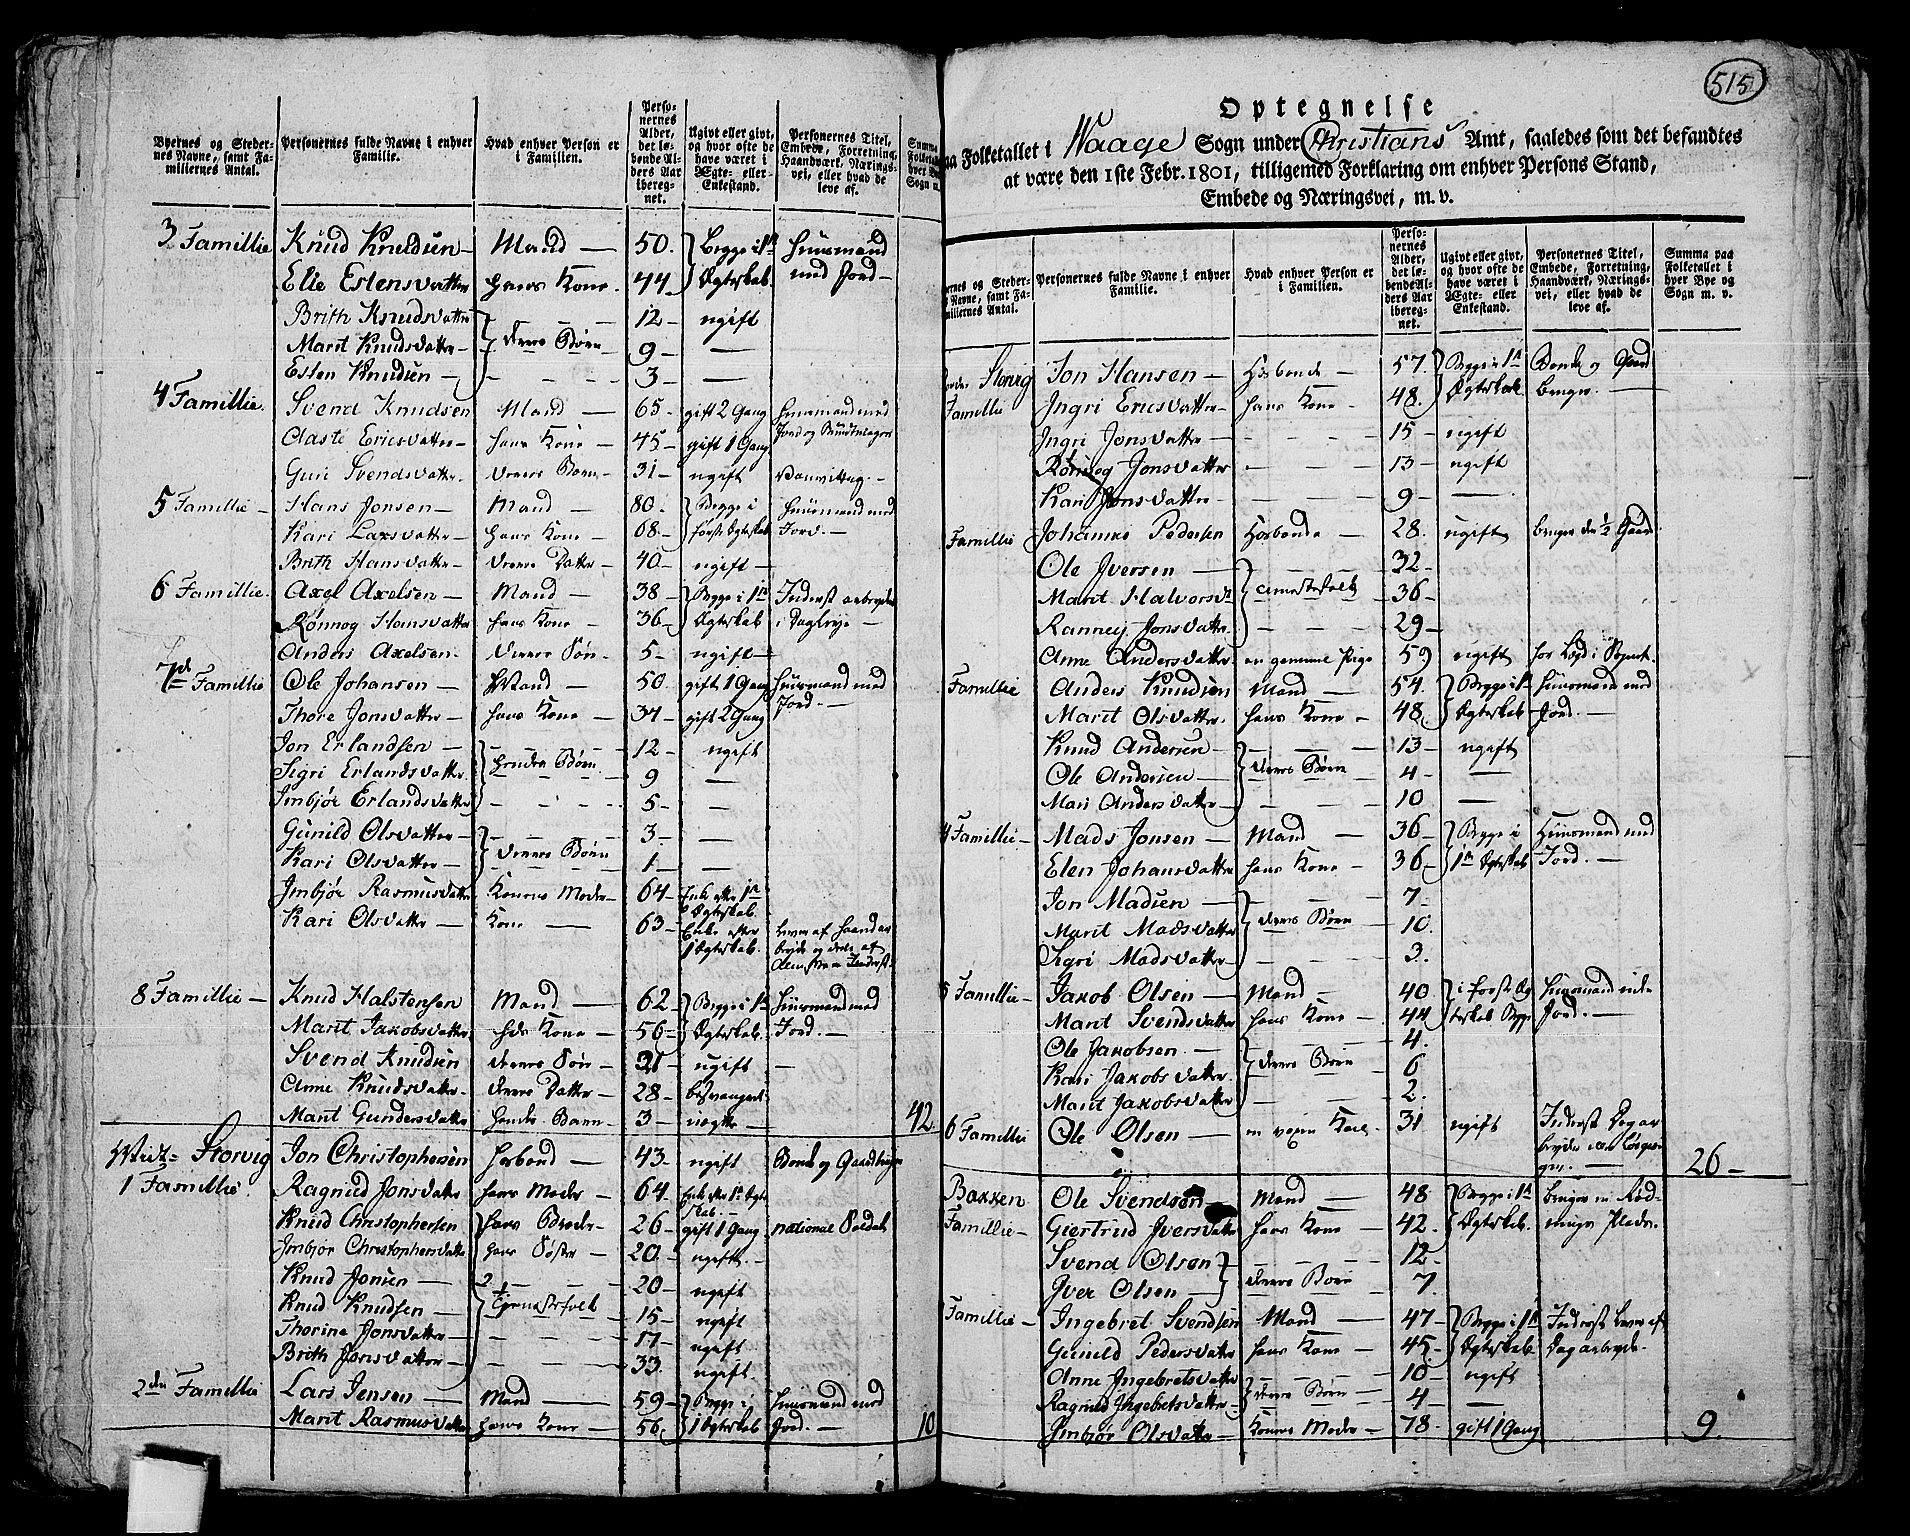 Byernes og Steder- Personernes fulde Navne i enhver Hvad enhver Person er Perso- Ugivt eller givt, Personernes Titel, Summa
nes Navne, samt Fa- Familie. i Familien. nernes Alder, og hvor ofte de Embede, Forretning,
miliernes Antal. det lø- have været i Haandværk, Nærings-
bende Al- Ægte- eller vei, eller hvad de
ders Aar Enkestand. leve af.
iberegnet.
3 Famillie Knud Knudsen Mand 50. Begge i 1ste Huusmand
Elie Estensdatter hans Kone 44 Ægteskab med Jord
Brith Knudsdatter 12 ugift
Marit Knudsdatter deres Børn 9
Esten Knudsen 3
4 Famillie. Svend Knudsen Mand 65 gift 2 Gang Huusmand med
Aaste Ericsdatter hans Kone 45 gift 1 Gang Jord og
Guri Svendsdatter deres Barn 31 ugift Vanvittig
5 Famillie Hans Jonsen Mand 80. Begge i Huusmand med
Kari Larsdatter hans Kone 68 første Ægteskab Jord
Brith Hansdatter deres Datter 40 ugift
6 Famillie. Axel Axelsen Mand 38 Begge i 1ste Inderst arbeyder
Rønnog Hansdatter hans Kone 36 Ægteskab i Dagleye
Anders Axelsen deres Søn 5 ugift
7de Famillie Ole Johansen Mand 50. gift 1 Gang Huusmand med
Thore Jonsdatter hans Kone 34 gift 2 Gang Jord.
Jon Erlandsen 12 ugift
Sigri Erlandsdatter hendes Børn 9
Imbjør Erlandsdatter 5
Gunild Olsdatter 3
Kari Olsdatter deres Børn 1
Imbjør Rasmusdatter Konens Moder 64 Enke efter 1ste
Ægteskab
Kari Olsdatter Kone 63 Enke efter lever af Haandar
1 Ægteskab. beyde og
8 Famillie Knud Halstensen Mand 62 Begge i 1ste Huusmand med
Marit Jakobsdatter hans Kone 56 Ægteskab Jord.
Svend Knudsen deres Søn 31 ugift
Anne Knudsdatter deres Datter 28 besvangret
Marit Gundersdatter hendes Barn 3 uægte 42
Midt= Storvig Jon Christophersen Hosbond 43 ugift Bonde og Gaardbruger
1 Famillie. Ragnild Jonsdatter hans Moder 64 Enke efter 1ste Ægte
skab.
Knud Christophersen hans Broder 26 gift 1 Gang national Soldat
Imbjør Christophersdatter hans Søster 20 ugift
Knud Jonsen 20 ugift
Knud Knudsen Tjenestefolk 15 ugift
Thorine Jonsdatter 17 ugift
Brith Jonsdatter 33. ugift
2den Famillie Lars Jensen Mand 59 Begge i Huusmand med
Marit Rasmusdatter hans Kone 56 1 Ægteskab Jord. 10
515
Optegnelse
paa Folketallet i Waage Sogn under Christians Amt, saaledes som det befandtes
at være den 1ste Febr. 1801, tilligemed Forklaring om enhver Persons Stand,
Embede og Næringsvei, m. v.
Personernes fulde Navne i enhver Familie. Hvad enhver Person er i Familien. Personernes Alder, det løbende Alders Aar iberegnet. Ugivt eller givt, og hvor ofte de have været i Ægte- eller Enkestand. Personernes Titel, Embede, Forretning, Haandværk, Næringsvei, eller hvad de leve af. Summa paa Folketallet i hver Bye og Sogn m. v.
Storvig Jon Hansen Hosbonde 57. Begge i 1ste Bonde og Gaard
Famillie Ingri Ericsdatter hans Kone 48. Ægteskab bruger
Ingri Jonsdatter 15 ugift
Rønnog Jonsdatter 13 ugift
Kari Jonsdatter 9
Famillie Johannes Pedersen Hosbonde 28. ugift bruger den 1/2 Gaard
Ole Iversen 32
Marit Halvorsdt Tienestefolk 36
Ranney Jonsdatter 29
Anne Andersdatter en gammel Pige 59 ugift
Famillie Anders Knudsen Mand 54. Begge i 1ste Huusmand med
Marit Olsdatter. hans Kone 48 Ægteskab Jord.
Knud Andersen 13 ugift
Ole Andersen deres Børn 4
Mari Andersdatter 10
4 Famillie Mads Jonsen Mand 36 Begge i Huusmand med
Elen Johansdatter hans Kone 36 1ste Ægteskab Jord.
Jon Madsen 7
Marit Madsdatter deres Børn 10.
Sigri Madsdatter 3.
5 Famillie Jakob Olsen Mand 40 i første Æg Huusmand uden
Marit Svendsdatter hans Kone 44 teskab Begge Jord.
Ole Jakobsen 4.
Kari Jakobsdatter. deres Børn 6
Marit Jakobsdatter 2.
6 Famillie Ole Olsen en voxen Karl 31 ugift Inderst Dagar
26
Bakken Ole Svendsen Mand 48 Begge i 1ste bruger en Rød-
Famillie Giertrud Iversdatter hans Kone 42. Ægteskab. nings Plads.
Svend Olsen 12
Iver Olsen deres Børn 7.
Famillie Ingebret Svendsen Mand 47 Begge i 1ste Inderst lever af
Gunild Pedersdatter hans Kone 45 Ægteskab Dagarbeyde.
Anne Ingebretsdatter 10 ugift
Ragnild Ingebretsdatter deres Børn 4
Imbjør Olsdatter Konens Moder 78. gift 1 Gang 9.